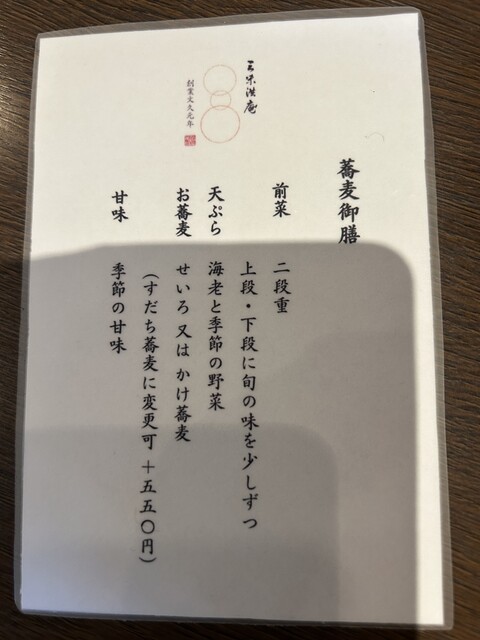 三味洪庵
創業文久元年
蕎麦御膳
前菜 二段重
上段・下段に旬の味を少しずつ
天ぷら 海老と季節の野菜
お蕎麦 せいろ 又は かけ蕎麦
(すだち蕎麦に変更可 +五五〇円)
甘味 季節の甘味